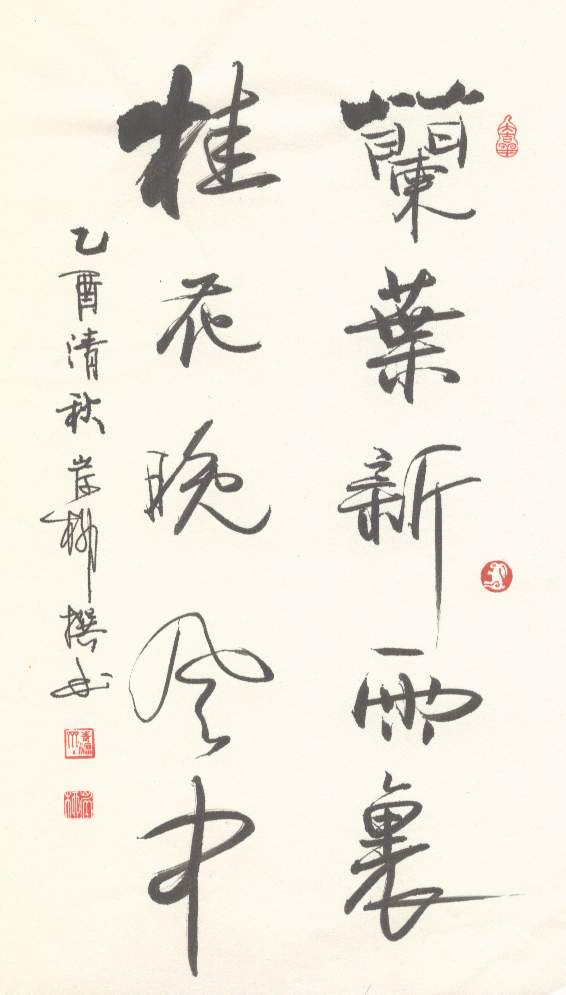 蘭葉新雨裏
桂花晚风中
乙酉清秋岸柳撰书